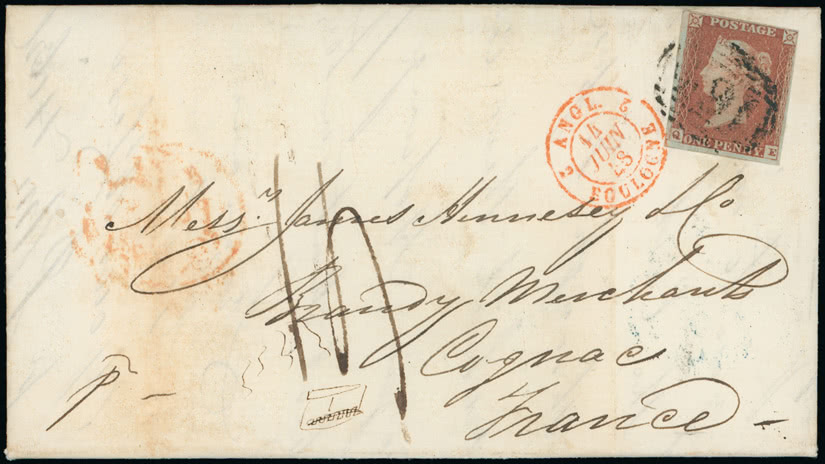 POSTAGE
ONE PENNY
Q E
2 ANGL. 2
14
JUIN
48
BOULOGNE
Messrs. James Hennesey & Co
Brandy Merchants
Cognac
France
p